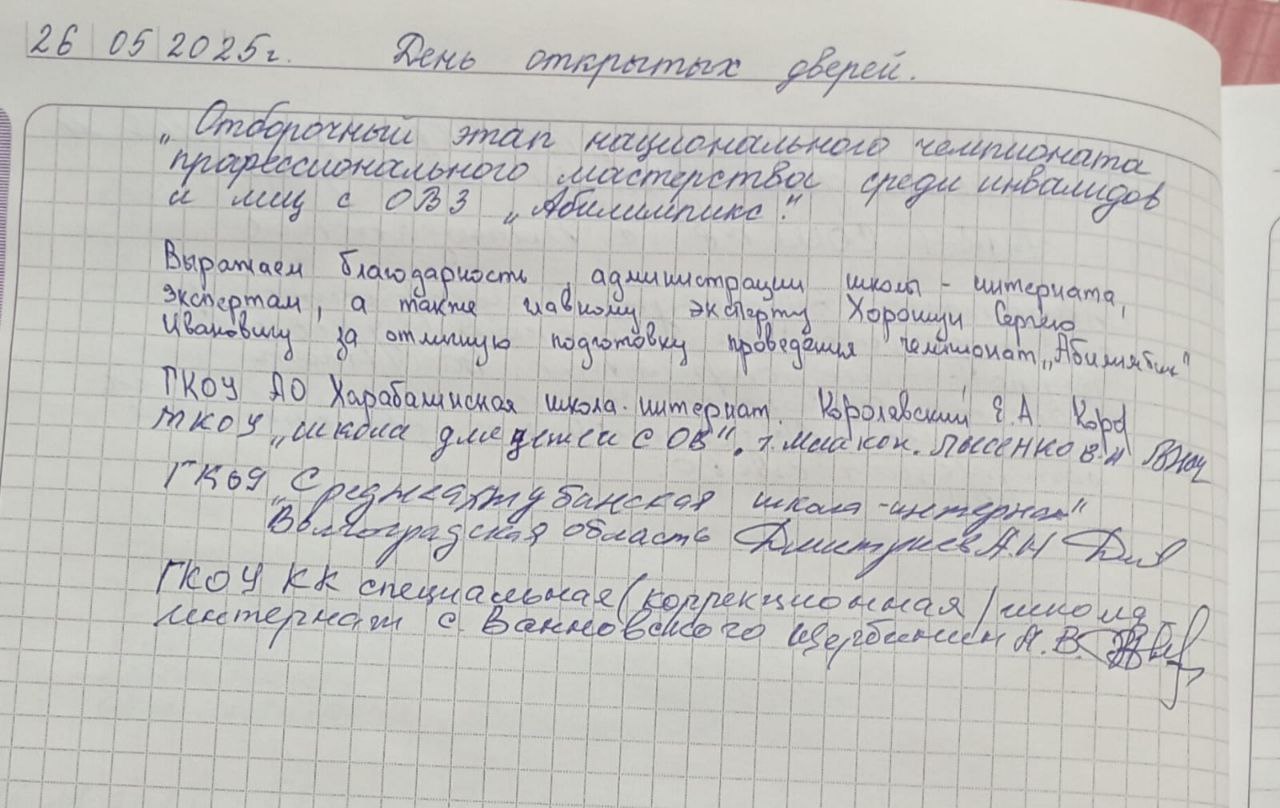 26 05 2025г. День открытых дверей.
„Отборочный этап национального чемпионата
профессионального мастерства среди инвалидов
и лиц с ОВЗ „Абилимпикс".
Выражаем благодарность администрации школы - интерната,
экспертам, а также главному эксперту Сергею
Ивановичу за отличную подготовку проведения чемпионат
ГКОУ АО Харабалинская школа-интернат. Королавский Е.А.
ГКОУ „школа для детей с ОВ". Лысенков В.Н
ГКОУ „Среднеахтубанская школа-интернат"
Волгоградская область Дмитриев А.Н
ГКОУ КК специальная (коррекционная) школа
интернат с. Ванновского Щербинин А.В.